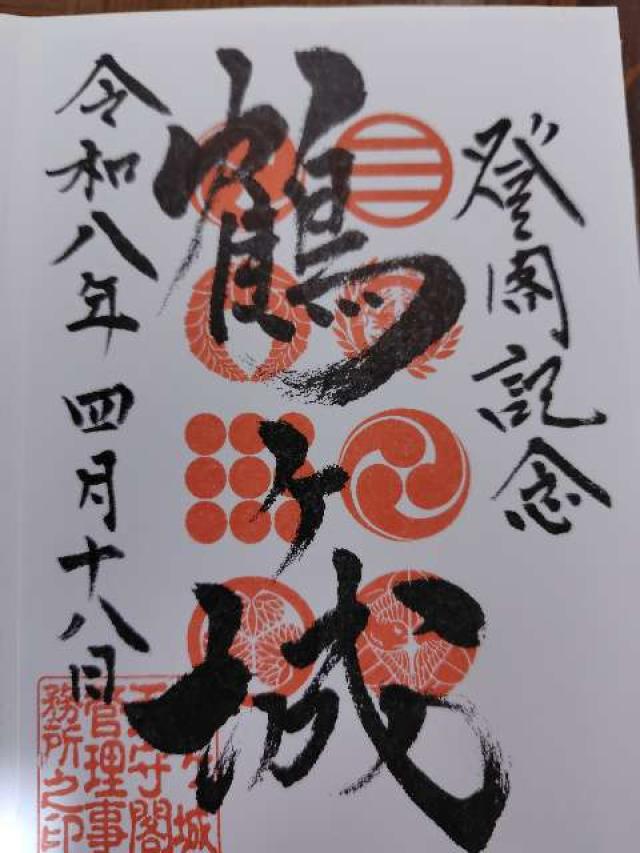 登閣記念
鶴ヶ城
令和八年 四月十八日
城
天守閣
管理事
務所之印